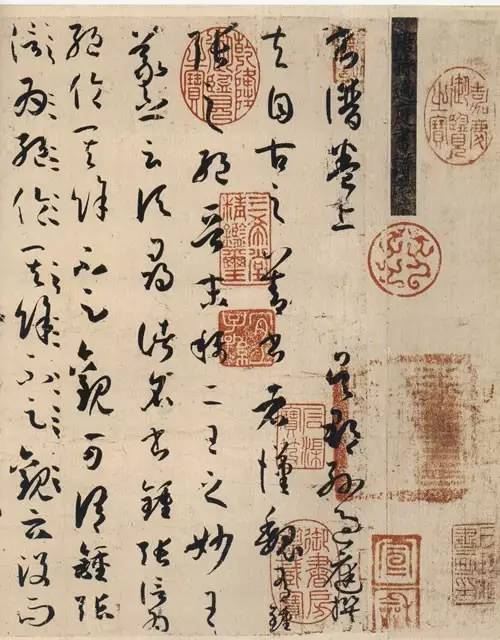 嘉慶御覽之寶
宣和
書譜卷上 吳郡孫過庭撰
夫自古之善書者漢魏有鍾
張之絕晉末稱二王之妙王
羲之云頃尋諸名書鍾張信為
絕倫其餘不足觀可謂鍾張
信為絕倫其餘不足觀云沒而
乾隆御覽之寶
三希堂精鑑璽
宜子孫
石渠寶笈